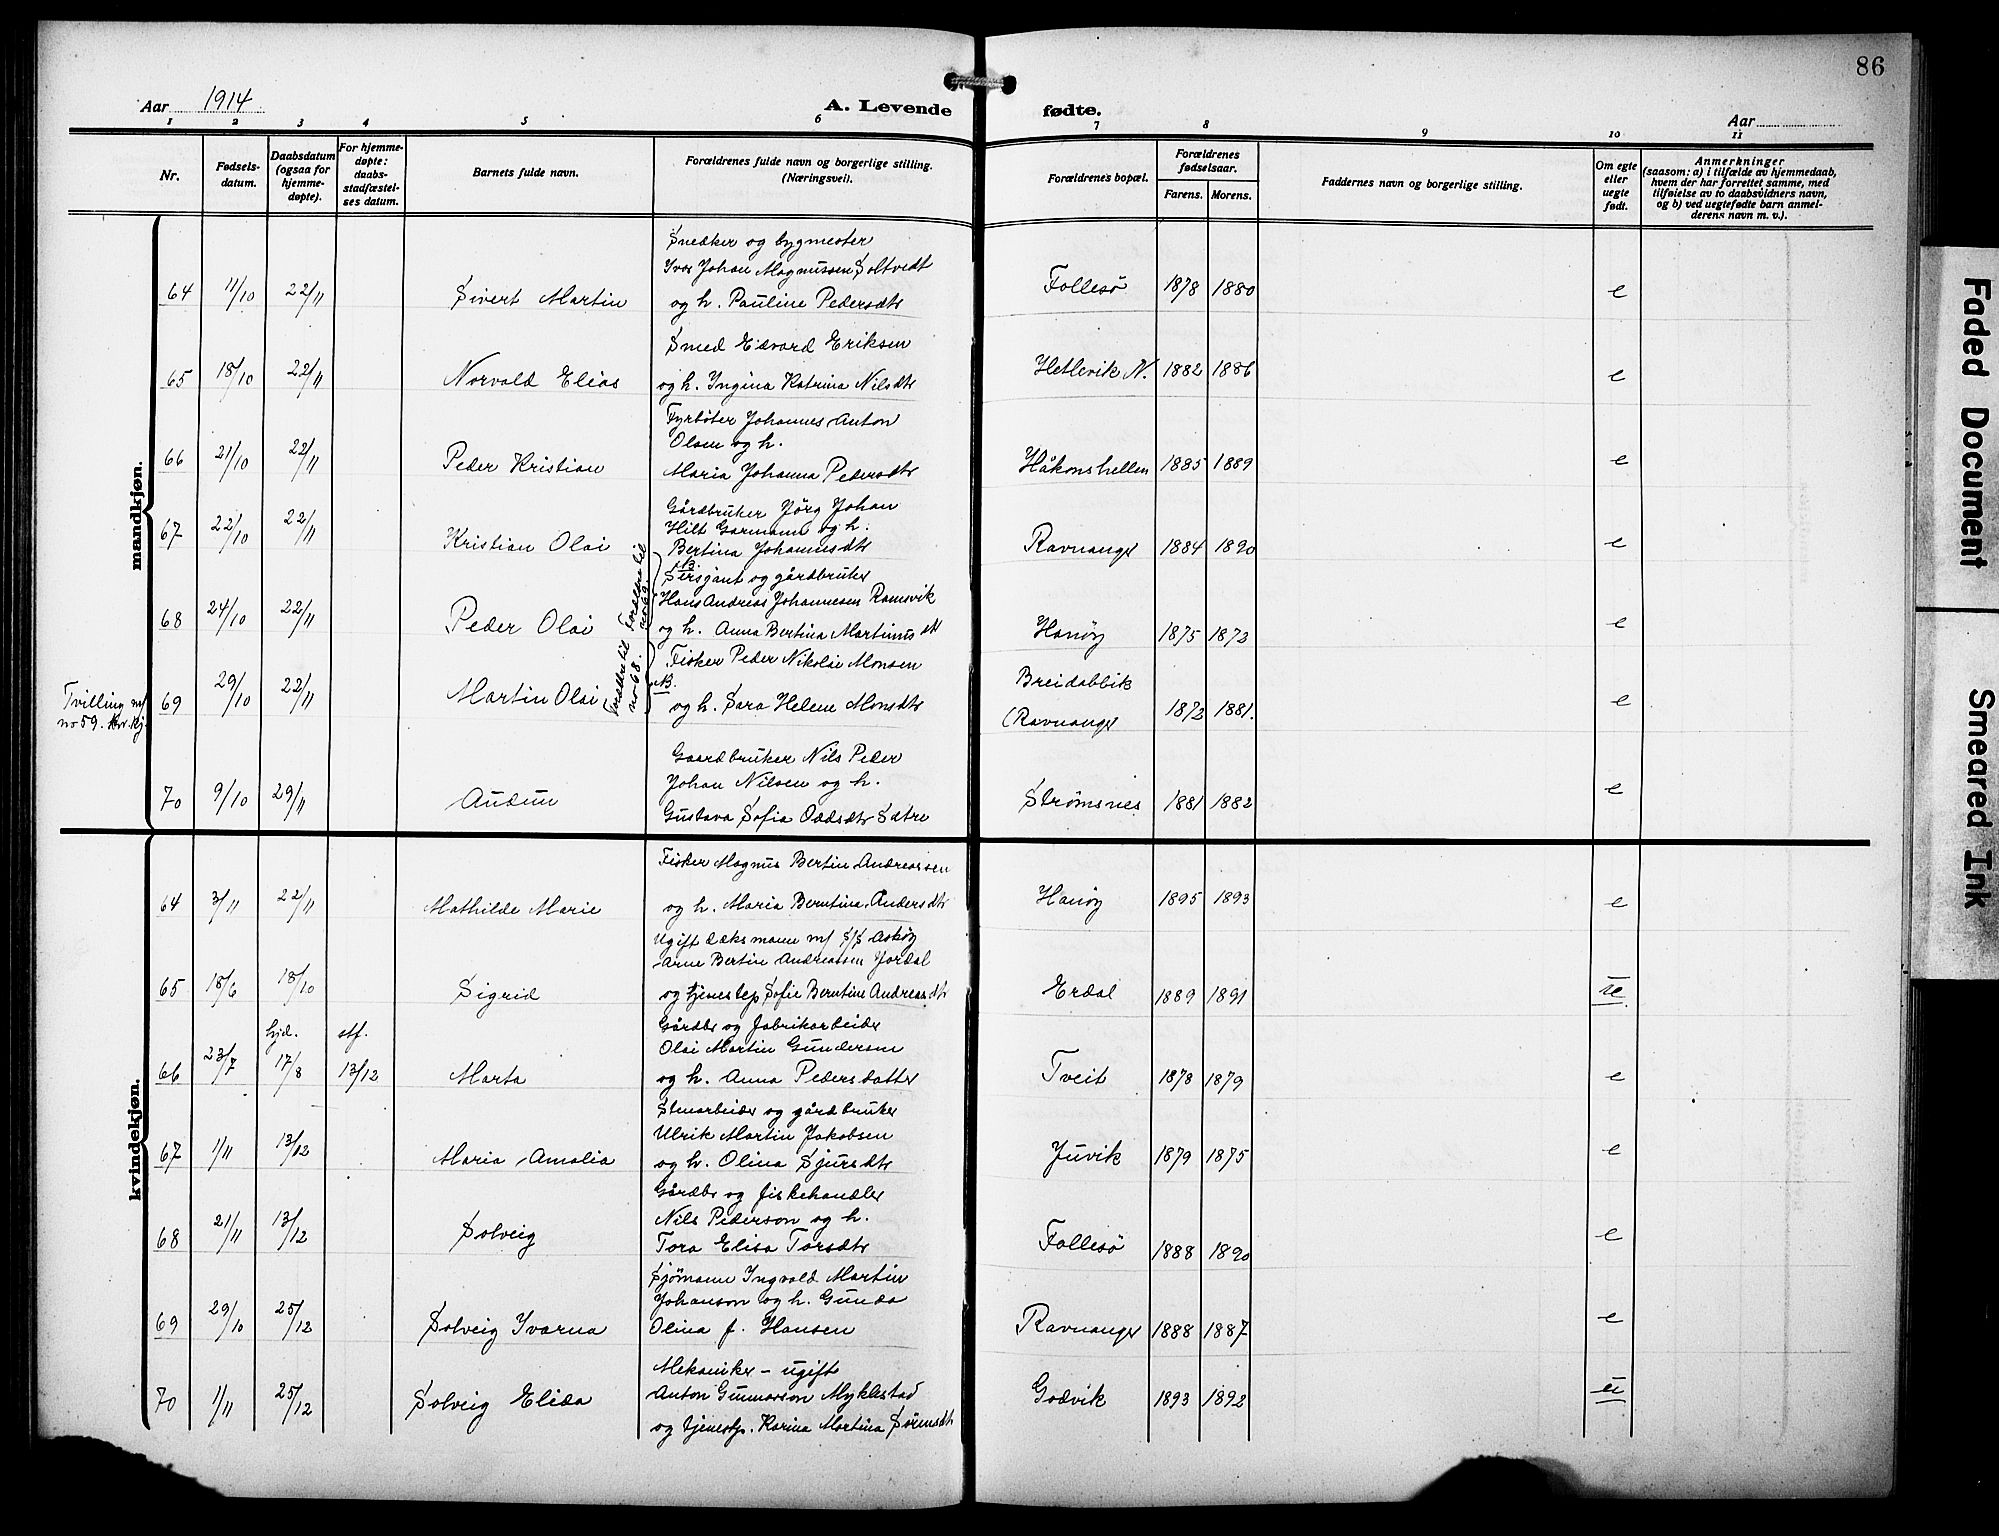 86
Aar 1914
A. Levende fødte.
Aar
1 2 3 4 5 6 7 8 9 10 11
Nr.
Fødsels-
datum.
Daabsdatum
(ogsaa for
hjemme-
døpte).
For hjemme-
døpte:
daabs-
stadfæstel-
ses datum.
Barnets fulde navn.
Forældrenes fulde navn og borgerlige stilling.
(Næringsvei).
Forældrenes bopæl.
Forældrenes
fødselsaar.
Farens. Morens.
Faddernes navn og borgerlige stilling.
Om egte
eller
uegte
født.
Anmerkninger
(saasom: a) i tilfælde av hjemmedaab,
hvem der har forrettet samme, med
tilføielse av to daabsvidners navn,
og b) ved uegtefødte barn anmel-
derens navn m. v.).
mandkjøn.
Snedker og bygmester
Ivar Johan Magnussen Soltvedt
64 11/10 22/11 Sivert Martin og h. Pauline Pedersdtr Follesö 1878 1880 e
Smed Edvard Eriksen
65 18/10 22/11 Norvald Elias og h. Ingina Katrina Nilsdtr Hetlevik N. 1882 1886 e
Fyrböter Johannes Anton
Olsen og h.
66 21/10 22/11 Peder Kristian Maria Johanna Pedersdtr Håkonshellen 1885 1889 e
Gårdbruker Jörg Johan
Hilt Garmann og h.
67 22/10 22/11 Kristian Olai Bertina Johannesdtr Ravnanger 1884 1890 e
NB.
Sersjant og gårdbruker
Hans Andreas Johannesen Ramsvik
68 24/10 22/11 Peder Olai og h. Anna Bertina Martinusdtr Hanöy 1875 1873 e
Forældre til
no 69.
Fisker Peder Nikolai Monsen
Tvilling m/
no 59. kv.kj.
69 29/10 22/11 Martin Olai NB. og h. Sara Helene Monsdtr Breidablik
(Ravnanger 1872 1881. e
Forældre til
no 68.
Gaardbruker Nils Peder
Johan Nilsen og h.
70 9/10 29/11 Audun Gustava Sofia Oddsdtr Sætre Strømsnes 1881 1882 e
kvindekjøn.
Fisker Magnus Bertin Andreassen
64 3/11 22/11 Mathilde Marie og h. Maria Berntina Andersdtr Hanöy 1895 1893 e
Ugift dæksmann m/ S/S Asköy
Arne Bertin Andreassen Jordal
65 18/6 18/10 Sigrid og tjenestep Sofie Berntine Andreasdtr Erdal 1889 1891 ue.
Gårdbr og fabrikarbeider
Olai Martin Gundersen
66 23/7 hjd. 17/8 stf. 13/12 Marta og h. Anna Pedersdatter Tveit 1878 1879 e
Stenarbeider og gårdbruker
Ulrik Martin Jakobsen
67 1/11 13/12 Maria Amalia og h. Olina Sjursdtr Juvik 1879 1875 e
Gårdbr og fiskehandler
Nils Pederson og h.
68 21/11 13/12 Solveig Tora Elisa Torsdtr Follesö 1888 1890 e
Sjömann Ingvald Martin
Johanson og h. Gunda
69 29/10 25/12 Solveig Ivarna Olina f. Hansen Ravnanger 1888 1887 e
Mekaniker – ugift
Anton Gunnarson Myklestad
70 1/11 25/12 Solveig Elida og tjenestp. Karina Martina Sörensdtr Godvik 1893 1892 u
Faded Document
Smeared Ink